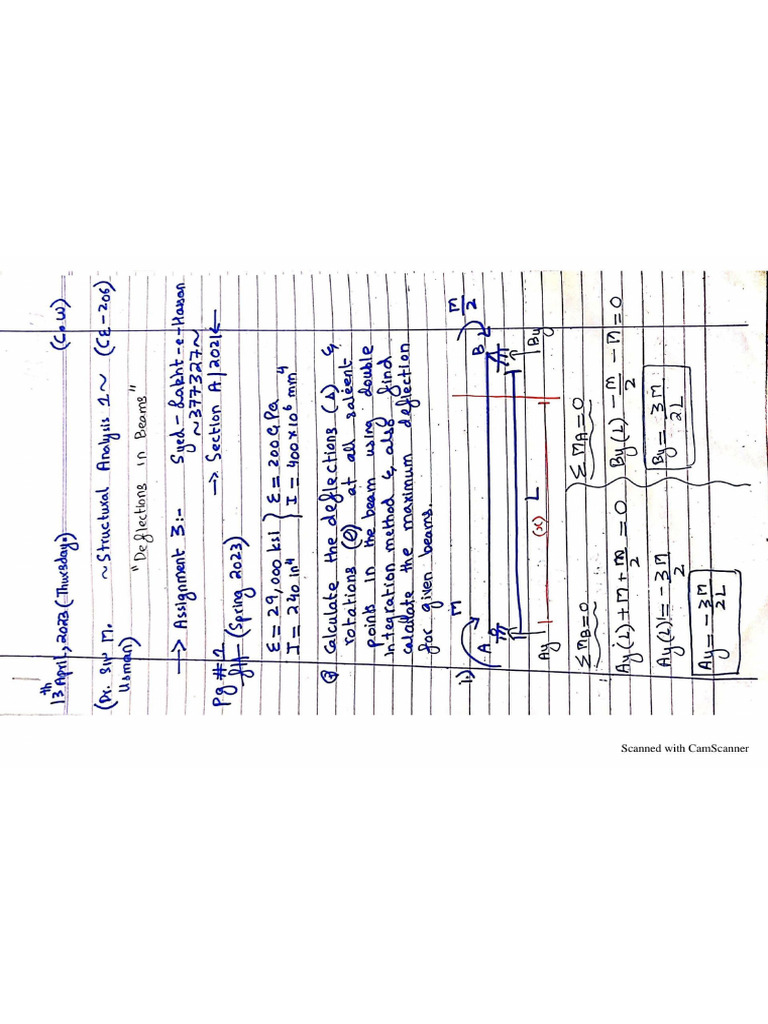 13th April, 2023 (Thursday.) (C.W)
(Dr. Sir M. Usman) ~Structural Analysis 1~ (CE-206)
"Deflections in Beams"
→ Assignment 3:- Syed-Sakht-e-Hassan
~377327~
Pg #1 → Section A|2021←
(Spring 2023)
E = 29,000 ksi } E = 200 GPa
I = 240 in4 } I = 400x10^6 mm4
Q Calculate the deflections (Δ) &
rotations (θ) at all saleent
points in the beam using double
integration method & also find
calculate the maximum deflection
for given beams.
i)
M
M/2
A
B
Ay
(x)
By
L
ΣMB=0
Ay(L)+M+m/2=0
Ay(L)=-3M/2
Ay=-3M/2L
ΣMA=0
By(L)-m/2-M=0
By=3M/2L
Scanned with CamScanner